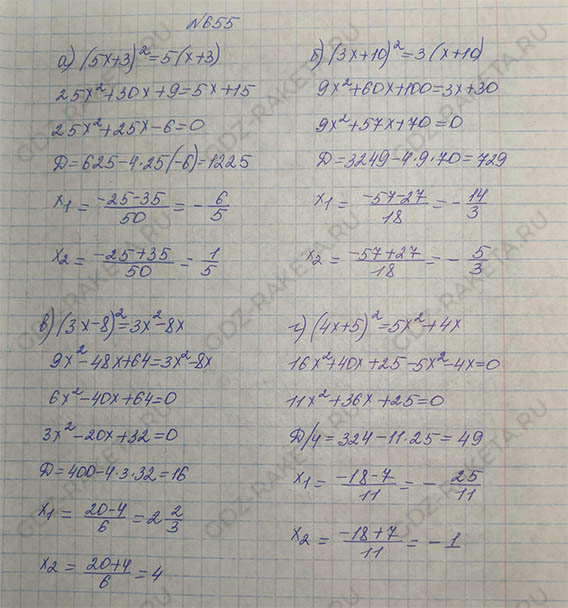 №655
а) (5x+3)²=5(x+3)
25x²+30x+9=5x+15
25x²+25x-6=0
Д=625-4·25(-6)=1225
x₁ = (-25-35)/50 = -6/5
x₂ = (-25+35)/50 = 1/5
б) (3x+10)²=3(x+10)
9x²+60x+100=3x+30
9x²+57x+70=0
Д=3249-4·9·70=729
x₁ = (-57-27)/18 = -14/3
x₂ = (-57+27)/18 = -5/3
в) (3x-8)²=3x²-8x
9x²-48x+64=3x²-8x
6x²-40x+64=0
3x²-20x+32=0
Д=400-4·3·32=16
x₁ = (20-4)/6 = 2 2/3
x₂ = (20+4)/6 = 4
г) (4x+5)²=5x²+4x
16x²+40x+25-5x²-4x=0
11x²+36x+25=0
Д/4=324-11·25=49
x₁ = (-18-7)/11 = -25/11
x₂ = (-18+7)/11 = -1
GDZ-RAKETA.RU